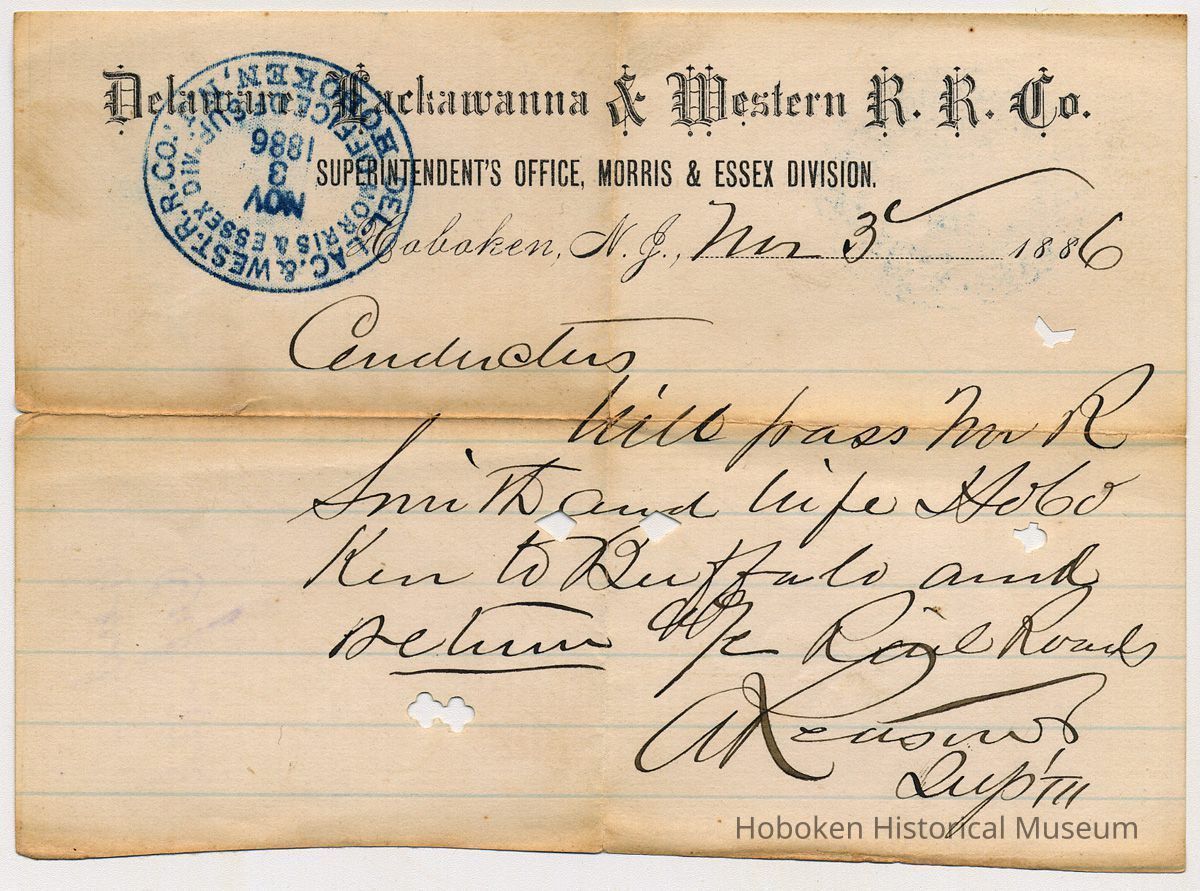 Delaware, Lackawanna & Western R. R. Co.
SUPERINTENDENT'S OFFICE, MORRIS & ESSEX DIVISION.
Hoboken, N. J., Nov 3 1886
DEL. LAC. & WEST. R. R. CO.
MORRIS & ESSEX DIV.
NOV
3
1886
OFFICE OF SUP'T,
HOBOKEN, N.J.
Conductors
Will pass Mr R
Smith and Wife Hobo
Ken to Buffalo and
return a/c Rail Roads
A Reasoner
Sup't
Hoboken Historical Museum